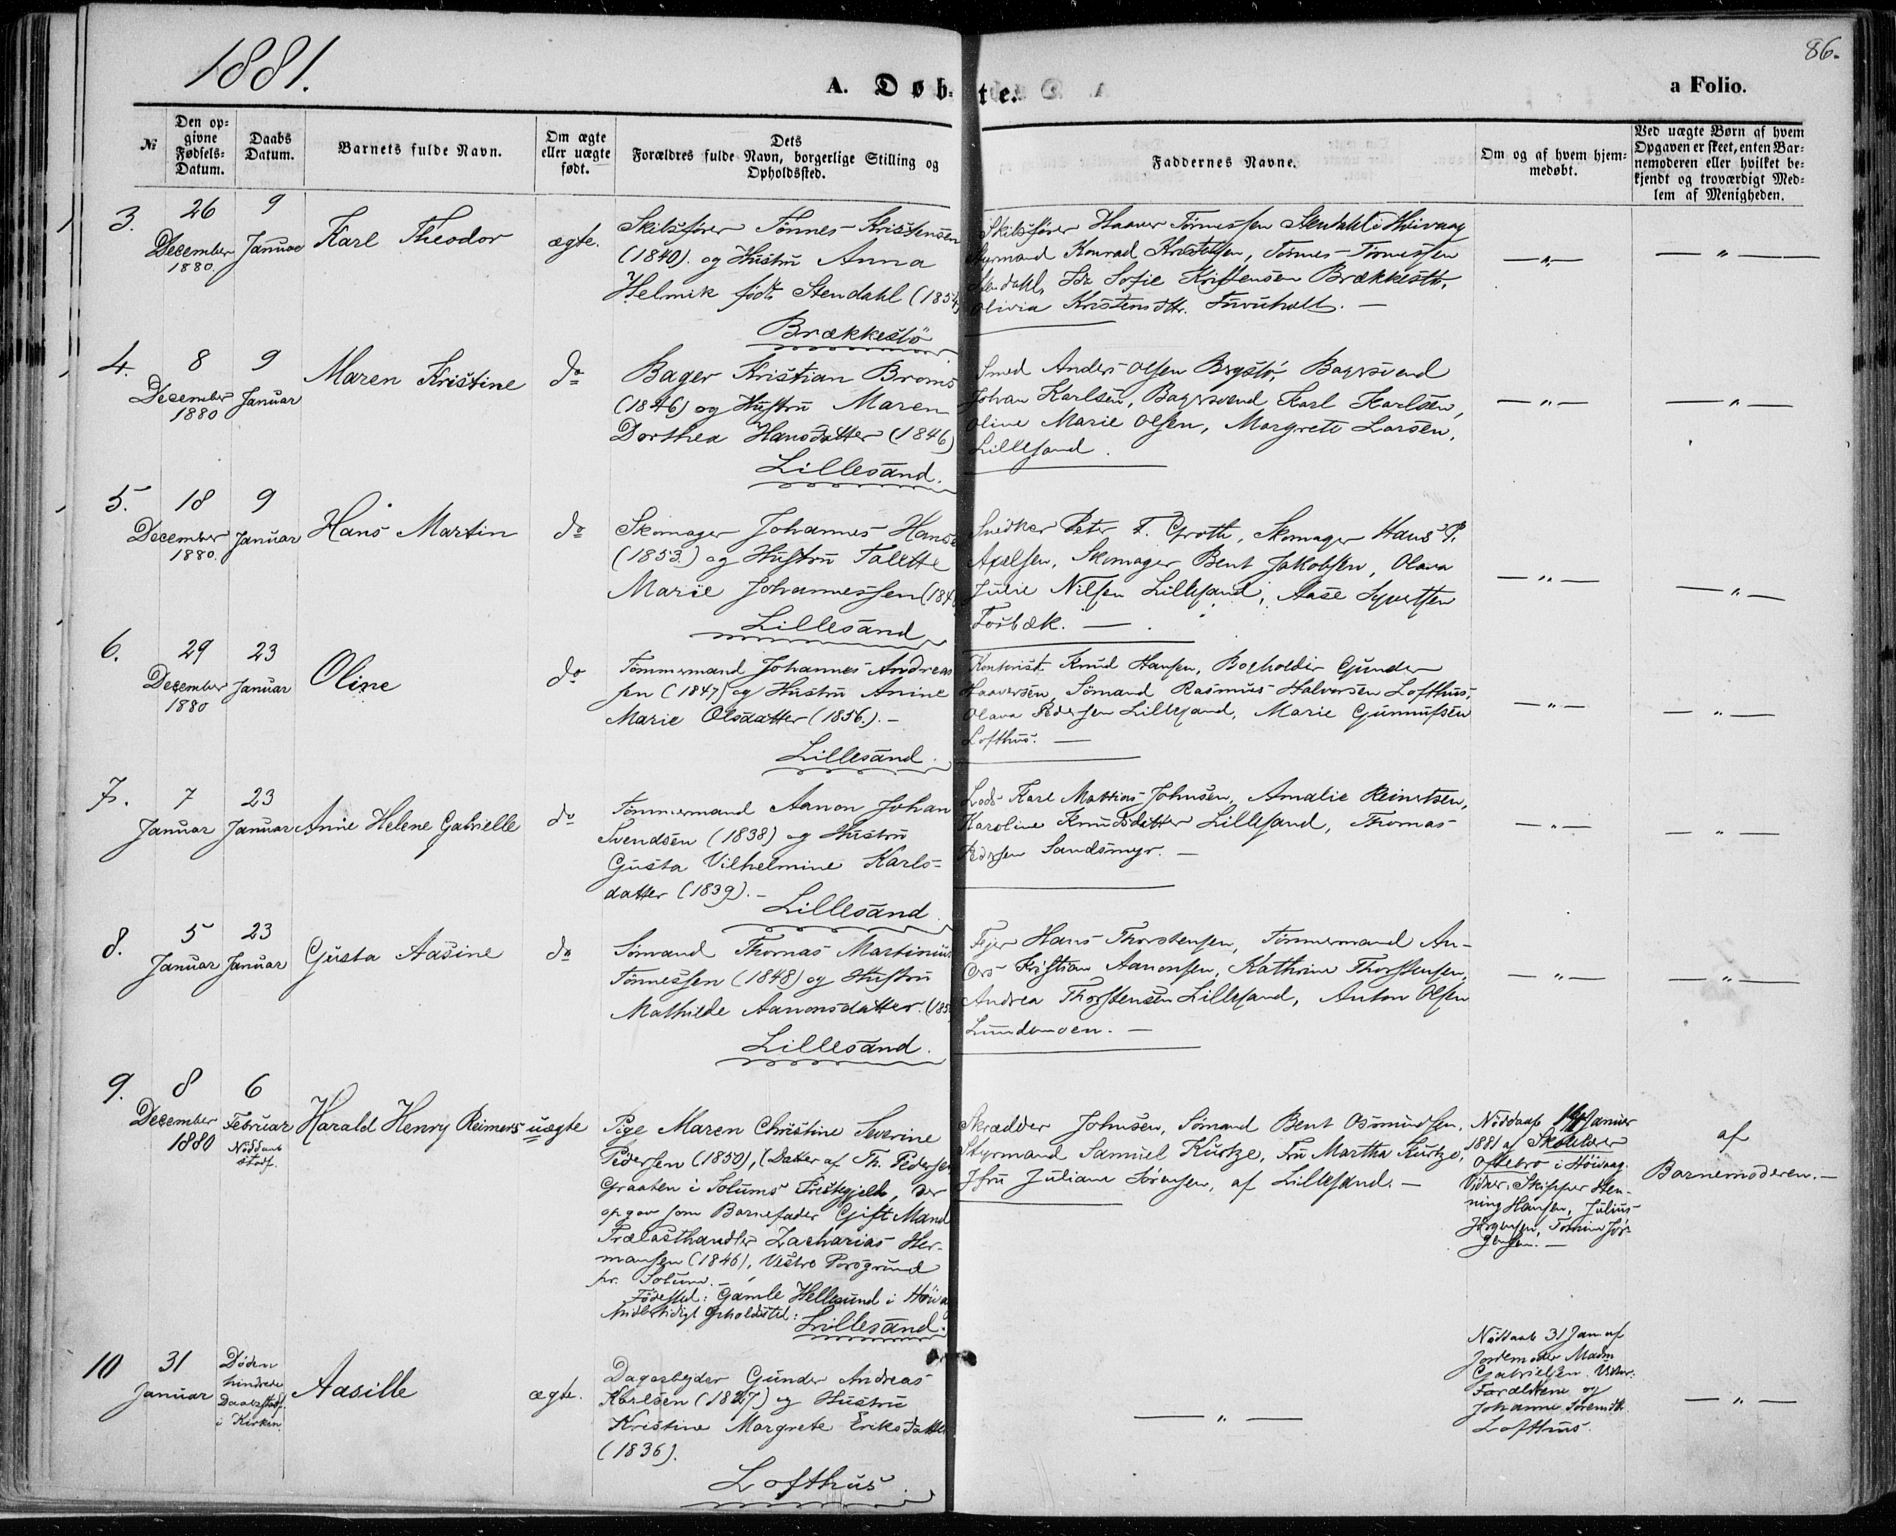 1881.
86.
A. Døbte.
a Folio.
№
Den op-
givne
Fødsels-
Datum.
Daabs
Datum.
Barnets fulde Navn.
Om ægte
eller uægte
født.
Dets
Forældres fulde Navn, borgerlige Stilling og
Opholdssted.
Faddernes Navne.
Om og af hvem hjem-
medøbt.
Ved uægte Børn af hvem
Opgaven er skeet, enten Bar-
nemoderen eller hvilket be-
kjendt og troværdigt Med-
lem af Menigheden.
3.
26
December
1880.
9
Januar
Karl Theodor
ægte.
Skibsfører Tønnes Kristensen
(1840). og Hustru Anna
Helmik født Stendahl (1854)
Brækkestö
Skibsfører Haaver Tønnessen Stendahl i Høivaag
Styrmand Konrad Kristensen, Tønnes Tønnessen
Stendahl, Sofie Kristensen Brækkestö,
Olivia Kristensdtr. Furuholt. —
— „ —
— „ —
4.
8
December
1880
9
Januar
Maren Kristine
do
Bager Kristian Broms
(1846) og Hustru Maren
Dorthea Hansdatter (1846)
Lillesand.
Smed Anders Olsen Brystö, Bagersvend
Johan Karlsen, Bagersvend Karl Karlsen,
Oline Marie Olsen, Margrete Larsen,
Lillesand.
— „ —
— „ —
5.
18
December
1880.
9
Januar
Hans Martin
do
Skomager Johannes Hansen
(1853) og Hustru Talette
Marie Johannessen (184
Lillesand
Snedker Peter F. Groth, Skomager Hans P.
Axelsen, Skomager Bent Jakobsen, Olava
Julie Nilsen Lillesand, Aase Syvertsen
Fosbæk. —
— „ —
— „ —
6.
29
December
1880
23
Januar
Oline
do
Tømmermand Johannes Andreas-
sen (1847) og Hustru Anine
Marie Olsdatter (1856). —
Lillesand.
Kontorist Knud Hansen, Bogholder Gunder
Haaversen, Sømand Rasmus Halvorsen Lofthus,
Olava Pedersen Lillesand, Marie Gunnufsen
Lofthus. —
— „ —
— „ —
7.
7
Januar
23
Januar
Anne Helene Gabrielle
do
Tømmermand Aanon Johan
Svendsen (1838) og Hustru
Gusta Vilhelmine Karls-
datter (1839). —
Lillesand.
Lods Karl Mathias Johnsen, Amalie Reinertsen,
Karoline Knudsdatter Lillesand, Thomas
Pedersen Sandsmyr. —
— „ —
— „ —
8.
5
Januar
23
Januar
Gusta Aasine
do
Sømand Thomas Martinius
Tønnessen (1848) og Hustru
Mathilde Aanonsdatter. (185
Lillesand.
Fejer Hans Thorstensen, Tømmermand An-
ders Kristian Aanonsen, Kathrine Thorstensen,
Andrea Thorstensen Lillesand, Anton Olsen
Lundemoen. —
— „ —
— „ —
9.
8
December
1880
6
Februar
Nöddaab
stadf.
Harald Henry Reimers
uægte
Pige Maren Christine Severine
Pedersen (1850), (Datter af Th. Pedersen
Graaten i Solums Prestegjeld, der
opgav som Barnefader Gift Mand
Trælasthandler Zacharias Her-
mansen (1846), Vestre Porsgrund
pr. Solum. —
Födested: Gamle Hellesund i Høivaag
Midlertidigt Opholdssted:
Lillesand.
Skrædder Johnsen, Sømand Bent Osmundsen,
Styrmand Samuel Kurtze, Fru Martha Kurtze,
Jfru Juliane Sørensen, af Lillesand. —
Nöddaab 14 Januar
1881 af Skolelærer
Oftebro i Høivaag.
Vidner: Skipper Hen-
ning Hansen, Julius
Jörgensen, Tomine Jör-
gensen. —
af
Barnemoderen. —
10
31
Januar
Döden
hindrede
Daabs stadf.
i Kirken
Aasille
ægte.
Dagarbejder Gunder Andreas
Karlsen (1827) og Hustru
Kristine Margrete Eriksdatter
(1836).
Lofthus.
— „ —
Nöddaab 31 Jan af
Jordemoder Madm
Gabrielsen. Vidner:
Forældrene og
Johanne Sørensdtr
Lofthus.
— „ —